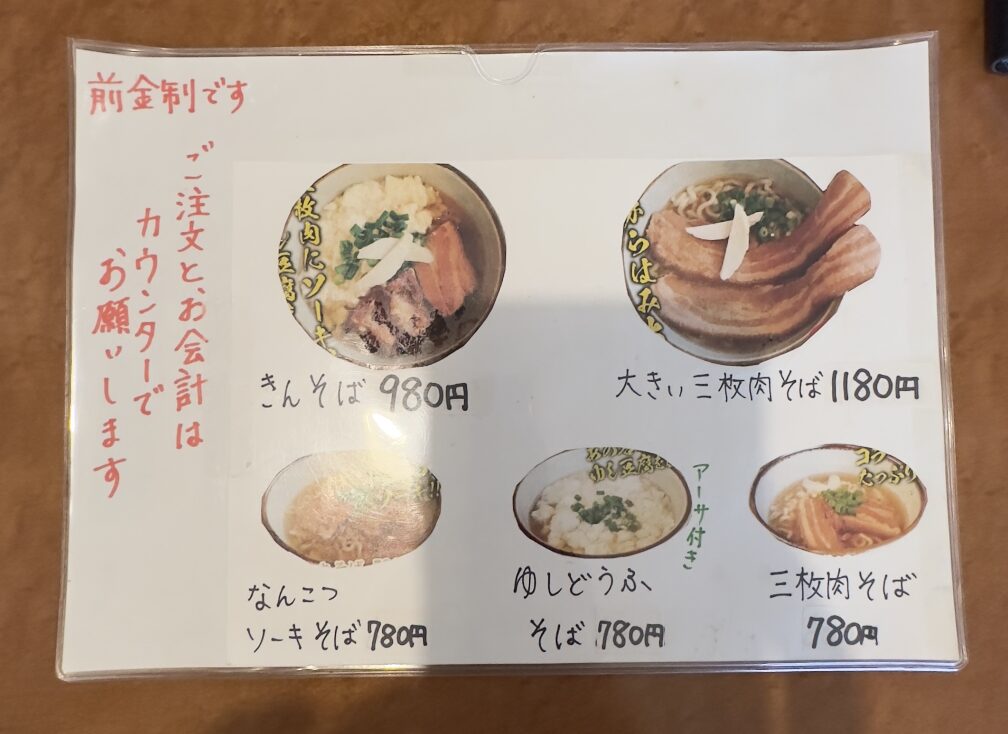 前金制です
ご注文と、お会計は
カウンターで
お願いします
枚肉にソーキ
豆腐
からはみ
きんそば 980円
大きい三枚肉そば 1180円
ゆし豆腐
アーサ付き
たっぷり
なんこつ
ソーキそば 780円
ゆしどうふ
そば 780円
三枚肉そば
780円